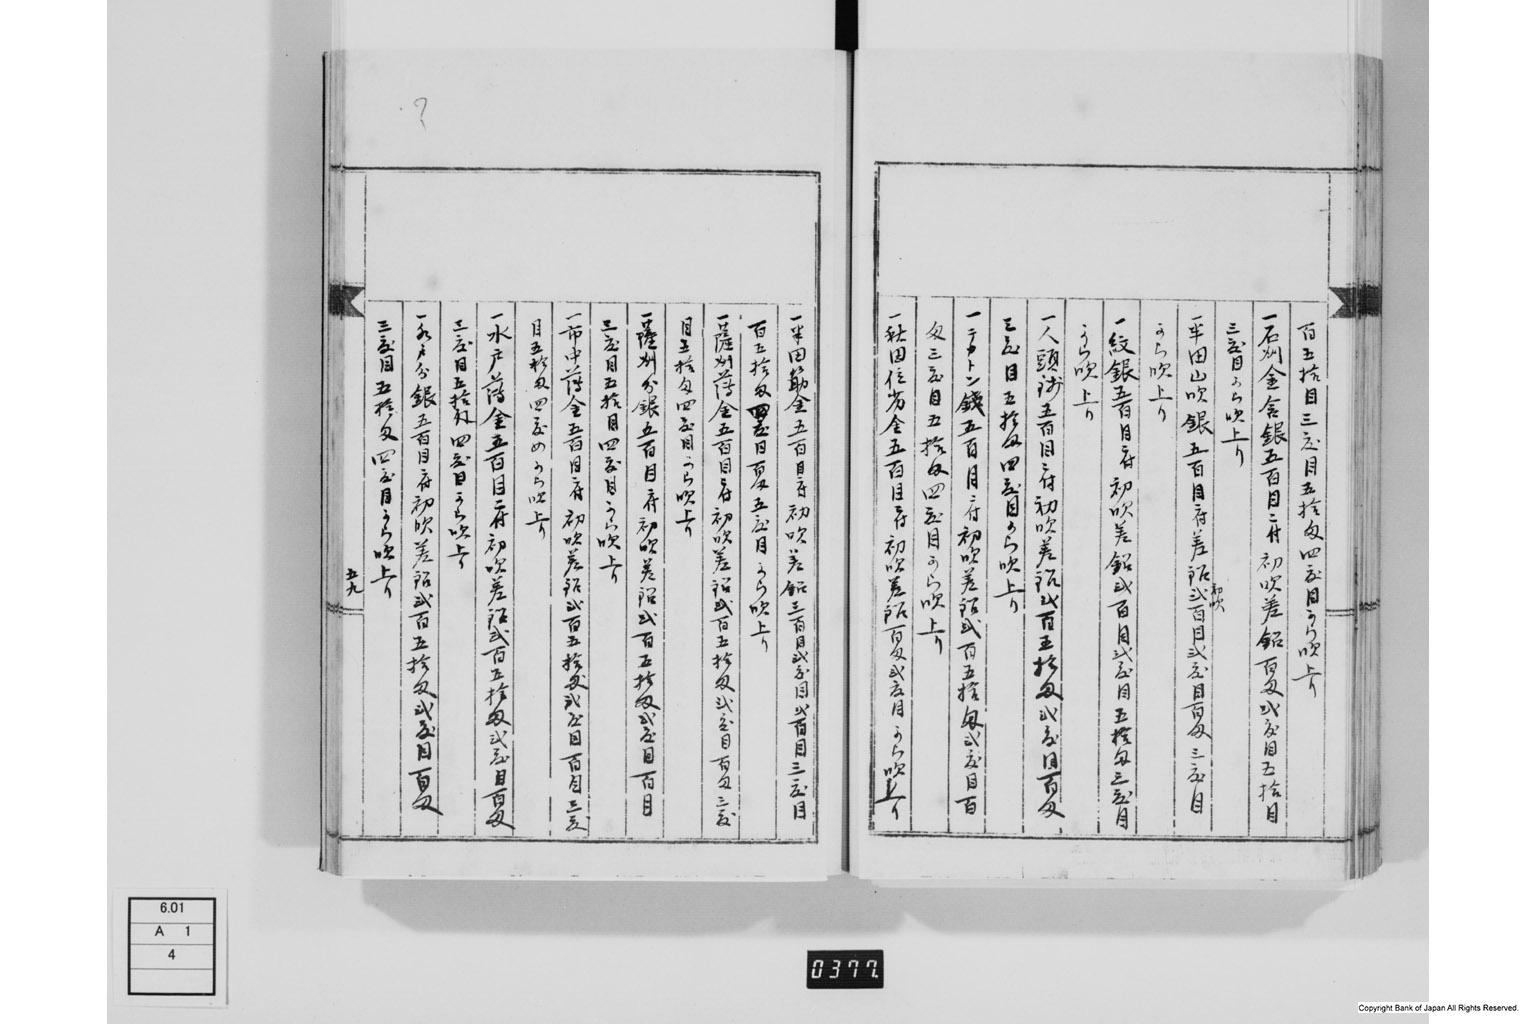 百五拾目三度目五拾匁四度目より吹上り
一石州金含銀五百目ニ付初吹差鉛百匁弐度目五拾目
三度目より吹上り
一半田山吹銀五百目ニ付差鉛弐百目弐度目百匁三度目
初吹
より吹上り
一紋銀五百目ニ付初吹差鉛弐百目弐度目五拾匁三度目
より吹上り
一人頭銭五百目ニ付初吹差鉛弐百五拾匁弐度目百匁
三度目五拾匁四度目より吹上り
一テカトン銭五百目ニ付初吹差鉛弐百五拾匁弐度目百
匁三度目五拾匁四度目より吹上り
一秋田位劣金五百目ニ付初吹差鉛百匁弐度目より吹上り
一半田筋金五百目ニ付初吹差鉛三百目弐度目弐百目三度目
百五拾匁四度目百匁五度目より吹上り
一薩州薄金五百目ニ付初吹差鉛弐百五拾匁弐度目百匁三度
目五拾匁四度目より吹上り
一薩州分銀五百目ニ付初吹差鉛弐百五拾匁弐度目百目
三度目五拾目四度目より吹上り
一市中薄金五百目ニ付初吹差鉛弐百五拾匁弐度目百目三度
目五拾匁四度めより吹上り
一水戸薄金五百目ニ付初吹差鉛弐百五拾匁弐度目百匁
三度目五拾匁四度目より吹上り
一水戸分銀五百目ニ付初吹差鉛弐百五拾匁弐度目百匁
三度目五拾匁四度目より吹上り
五九
?
6.01
A 1
4
0377
Copyright Bank of Japan All Rights Reserved.